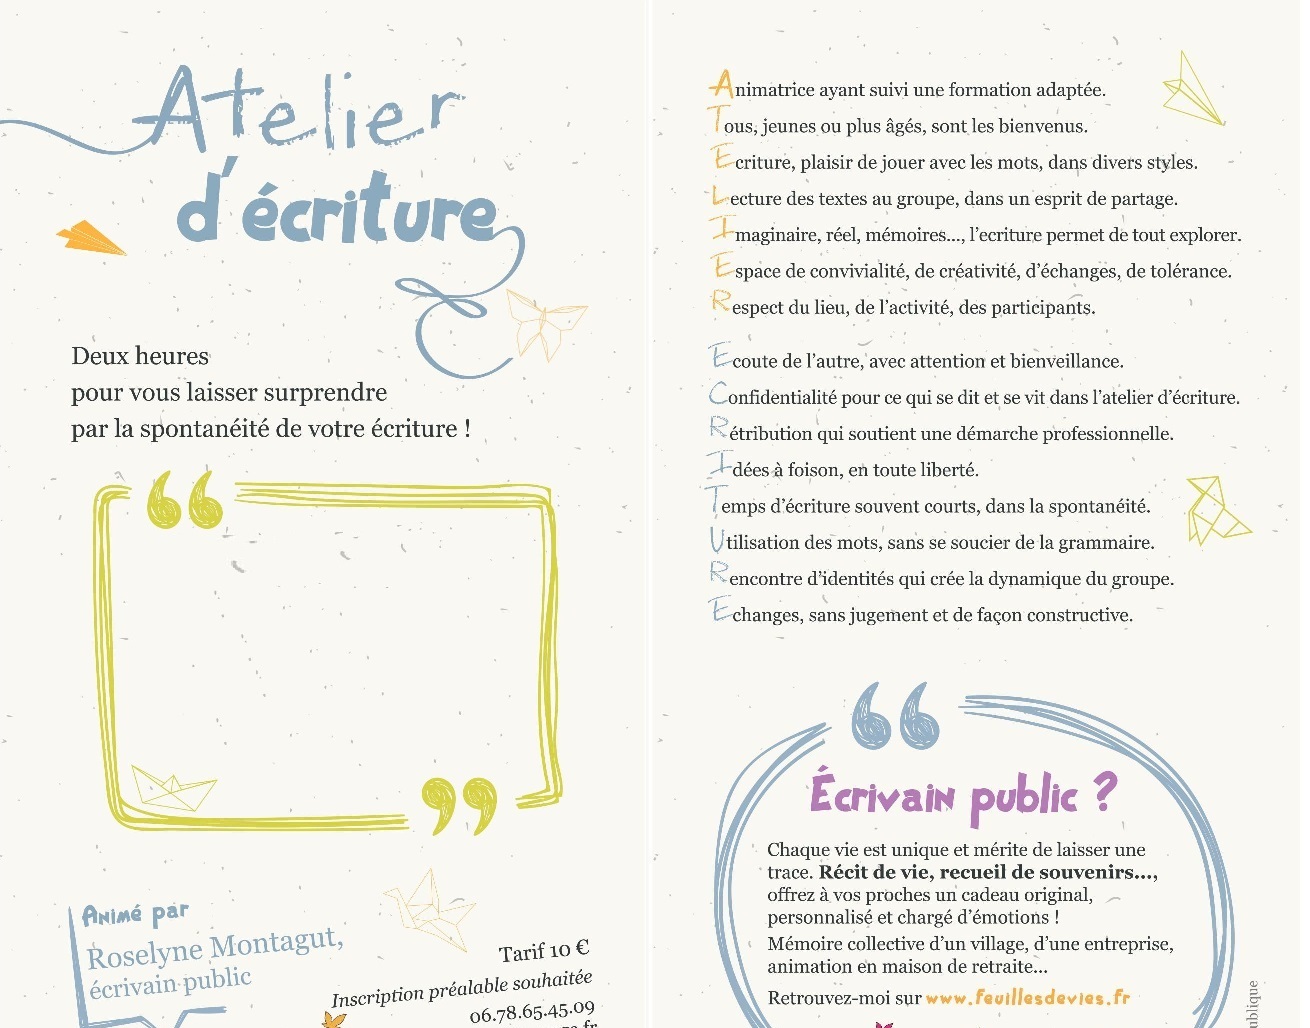 Atelier
d'écriture
Deux heures
pour vous laisser surprendre
par la spontanéité de votre écriture !
Animé par
Roselyne Montagut,
écrivain public
Tarif 10 €
Inscription préalable souhaitée
06.78.65.45.09
Animatrice ayant suivi une formation adaptée.
Tous, jeunes ou plus âgés, sont les bienvenus.
Ecriture, plaisir de jouer avec les mots, dans divers styles.
Lecture des textes au groupe, dans un esprit de partage.
Imaginaire, réel, mémoires..., l'ecriture permet de tout explorer.
Espace de convivialité, de créativité, d'échanges, de tolérance.
Respect du lieu, de l'activité, des participants.
Ecoute de l'autre, avec attention et bienveillance.
Confidentialité pour ce qui se dit et se vit dans l'atelier d'écriture.
Rétribution qui soutient une démarche professionnelle.
Idées à foison, en toute liberté.
Temps d'écriture souvent courts, dans la spontanéité.
Utilisation des mots, sans se soucier de la grammaire.
Rencontre d'identités qui crée la dynamique du groupe.
Echanges, sans jugement et de façon constructive.
Écrivain public ?
Chaque vie est unique et mérite de laisser une
trace. Récit de vie, recueil de souvenirs...,
offrez à vos proches un cadeau original,
personnalisé et chargé d'émotions !
Mémoire collective d'un village, d'une entreprise,
animation en maison de retraite...
Retrouvez-moi sur www.feuillesdevies.fr